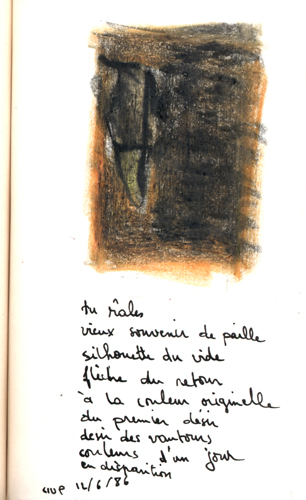 tu râles
vieux souvenir de paille
silhouette du vide
flèche du retour
à la couleur originelle
du premier désir
désir des vantours
couleurs d'un jour
en disparition
12/6/86